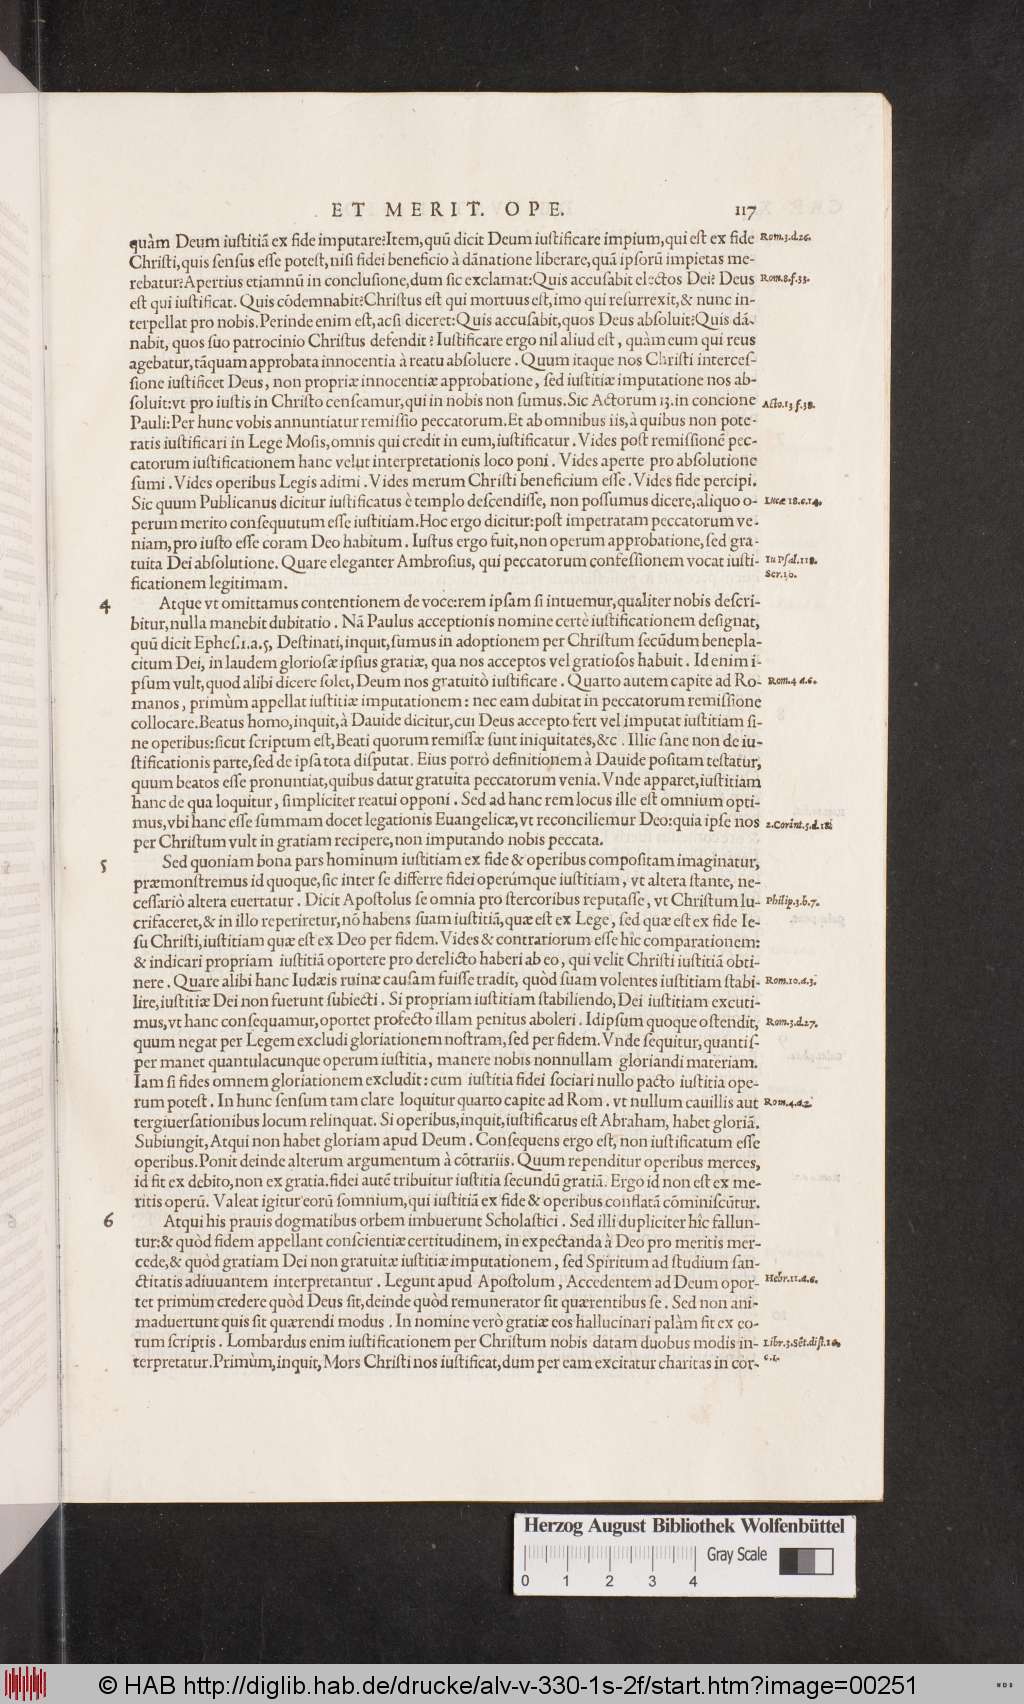 ET MERIT. OPE. 117
quàm Deum iuſtitiã ex fide imputare?Item,quũ dicit Deum iuſtificare impium,qui eſt ex fide Rom.3.d.26.
Chriſti,quis ſenſus eſſe poteſt,niſi fidei beneficio à dãnatione liberare,quã ipſorũ impietas me-
rebatur?Apertius etiamnũ in concluſione,dum ſic exclamat:Quis accuſabit electos Dei? Deus Rom.8.f.33.
eſt qui iuſtificat. Quis cõdemnabit?Chriſtus eſt qui mortuus eſt,imo qui reſurrexit,& nunc in-
terpellat pro nobis.Perinde enim eſt,acſi diceret:Quis accuſabit,quos Deus abſoluit?Quis dã-
nabit, quos ſuo patrocinio Chriſtus defendit? Iuſtificare ergo nil aliud eſt, quàm eum qui reus
agebatur,tãquam approbata innocentia à reatu abſoluere. Quum itaque nos Chriſti interceſ-
ſione iuſtificet Deus, non propriæ innocentiæ approbatione, ſed iuſtitiæ imputatione nos ab-
ſoluit:vt pro iuſtis in Chriſto cenſeamur,qui in nobis non ſumus.Sic Actorum 13.in concione Acto.13.f.38.
Pauli:Per hunc vobis annuntiatur remiſſio peccatorum.Et ab omnibus iis,à quibus non pote-
ratis iuſtificari in Lege Moſis,omnis qui credit in eum,iuſtificatur. Vides poſt remiſſionẽ pec-
catorum iuſtificationem hanc velut interpretationis loco poni. Vides aperte pro abſolutione
ſumi. Vides operibus Legis adimi. Vides merum Chriſti beneficium eſſe. Vides fide percipi.
Sic quum Publicanus dicitur iuſtificatus è templo deſcendiſſe, non poſſumus dicere,aliquo o- Lucæ 18.c.14.
perum merito conſequutum eſſe iuſtitiam.Hoc ergo dicitur:poſt impetratam peccatorum ve-
niam,pro iuſto eſſe coram Deo habitum. Iuſtus ergo fuit,non operum approbatione,ſed gra-
tuita Dei abſolutione. Quare eleganter Ambroſius, qui peccatorum confeſſionem vocat iuſti- In Pſal.118.
ficationem legitimam. Ser.10.
4 Atque vt omittamus contentionem de voce:rem ipſam ſi intuemur,qualiter nobis deſcri-
bitur,nulla manebit dubitatio. Nã Paulus acceptionis nomine certè iuſtificationem deſignat,
quũ dicit Epheſ.1.a.5, Deſtinati,inquit,ſumus in adoptionem per Chriſtum ſecũdum benepla-
citum Dei, in laudem glorioſæ ipſius gratiæ, qua nos acceptos vel gratioſos habuit. Id enim i-
pſum vult,quod alibi dicere ſolet,Deum nos gratuitò iuſtificare. Quarto autem capite ad Ro- Rom.4.a.6.
manos, primùm appellat iuſtitiæ imputationem: nec eam dubitat in peccatorum remiſſione
collocare.Beatus homo,inquit,à Dauide dicitur,cui Deus accepto fert vel imputat iuſtitiam ſi-
ne operibus:ſicut ſcriptum eſt,Beati quorum remiſſæ ſunt iniquitates,&c. Illic ſane non de iu-
ſtificationis parte,ſed de ipſa tota diſputat. Eius porrò definitionem à Dauide poſitam teſtatur,
quum beatos eſſe pronuntiat,quibus datur gratuita peccatorum venia. Vnde apparet,iuſtitiam
hanc de qua loquitur, ſimpliciter reatui opponi. Sed ad hanc rem locus ille eſt omnium opti-
mus,vbi hanc eſſe ſummam docet legationis Euangelicæ,vt reconciliemur Deo:quia ipſe nos 2.Corint.5.d.18.
per Chriſtum vult in gratiam recipere,non imputando nobis peccata.
5 Sed quoniam bona pars hominum iuſtitiam ex fide & operibus compoſitam imaginatur,
præmonſtremus id quoque,ſic inter ſe differre fidei operúmque iuſtitiam, vt altera ſtante, ne-
ceſſariò altera euertatur. Dicit Apoſtolus ſe omnia pro ſtercoribus reputaſſe, vt Chriſtum lu- Philip.3.b.7.
crifaceret,& in illo reperiretur,nõ habens ſuam iuſtitiã,quæ eſt ex Lege, ſed quæ eſt ex fide Ie-
ſu Chriſti,iuſtitiam quæ eſt ex Deo per fidem. Vides & contrariorum eſſe hîc comparationem:
& indicari propriam iuſtitiã oportere pro derelicto haberi ab eo, qui velit Chriſti iuſtitiã obti-
nere. Quare alibi hanc Iudæis ruinæ cauſam fuiſſe tradit, quòd ſuam volentes iuſtitiam ſtabi- Rom.10.a.3.
lire,iuſtitiæ Dei non fuerunt ſubiecti. Si propriam iuſtitiam ſtabiliendo,Dei iuſtitiam excuti-
mus,vt hanc conſequamur,oportet profecto illam penitus aboleri. Idipſum quoque oſtendit, Rom.3.d.27.
quum negat per Legem excludi gloriationem noſtram,ſed per fidem. Vnde ſequitur,quantiſ-
per manet quantulacunque operum iuſtitia, manere nobis nonnullam gloriandi materiam.
Iam ſi fides omnem gloriationem excludit: cum iuſtitia fidei ſociari nullo pacto iuſtitia ope-
rum poteſt. In hunc ſenſum tam clare loquitur quarto capite ad Rom. vt nullum cauillis aut Rom.4.a.2.
tergiuerſationibus locum relinquat. Si operibus,inquit,iuſtificatus eſt Abraham, habet gloriã.
Subiungit,Atqui non habet gloriam apud Deum. Conſequens ergo eſt, non iuſtificatum eſſe
operibus.Ponit deinde alterum argumentum à cõtrariis. Quum rependitur operibus merces,
id fit ex debito,non ex gratia.fidei autẽ tribuitur iuſtitia ſecundũ gratiã. Ergo id non eſt ex me-
ritis operũ. Valeat igitur eorũ ſomnium,qui iuſtitiã ex fide & operibus conflatã cõminiſcũtur.
6 Atqui his prauis dogmatibus orbem imbuerunt Scholaſtici. Sed illi dupliciter hîc fallun-
tur:& quòd fidem appellant conſcientiæ certitudinem, in expectanda à Deo pro meritis mer-
cede,& quòd gratiam Dei non gratuitæ iuſtitiæ imputationem, ſed Spiritum ad ſtudium ſan-
ctitatis adiuuantem interpretantur. Legunt apud Apoſtolum, Accedentem ad Deum opor- Hebr.11.a.6.
tet primùm credere quòd Deus ſit,deinde quòd remunerator ſit quærentibus ſe. Sed non ani-
maduertunt quis ſit quærendi modus. In nomine verò gratiæ eos hallucinari palàm fit ex eo-
rum ſcriptis. Lombardus enim iuſtificationem per Chriſtum nobis datam duobus modis in- Libr.3.Sẽt.diſt.19.
terpretatur.Primùm,inquit, Mors Chriſti nos iuſtificat,dum per eam excitatur charitas in cor- c.1.
Herzog August Bibliothek Wolfenbüttel
Gray Scale
0 1 2 3 4
© HAB http://diglib.hab.de/drucke/alv-v-330-1s-2f/start.htm?image=00251